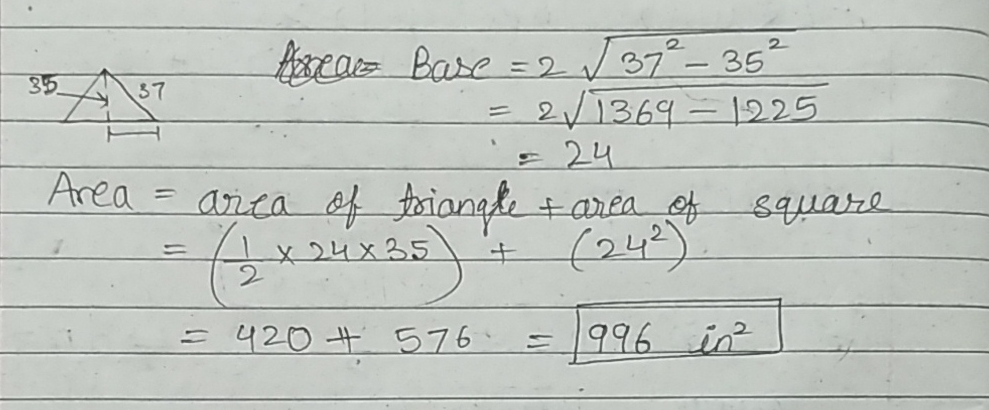 Base = 2 √37² – 35²
35 37
= 2√1369 – 1225
= 24
Area = area of triangle + area of square
= (1/2 × 24 × 35) + (24²)
= 420 + 576 = 996 in²